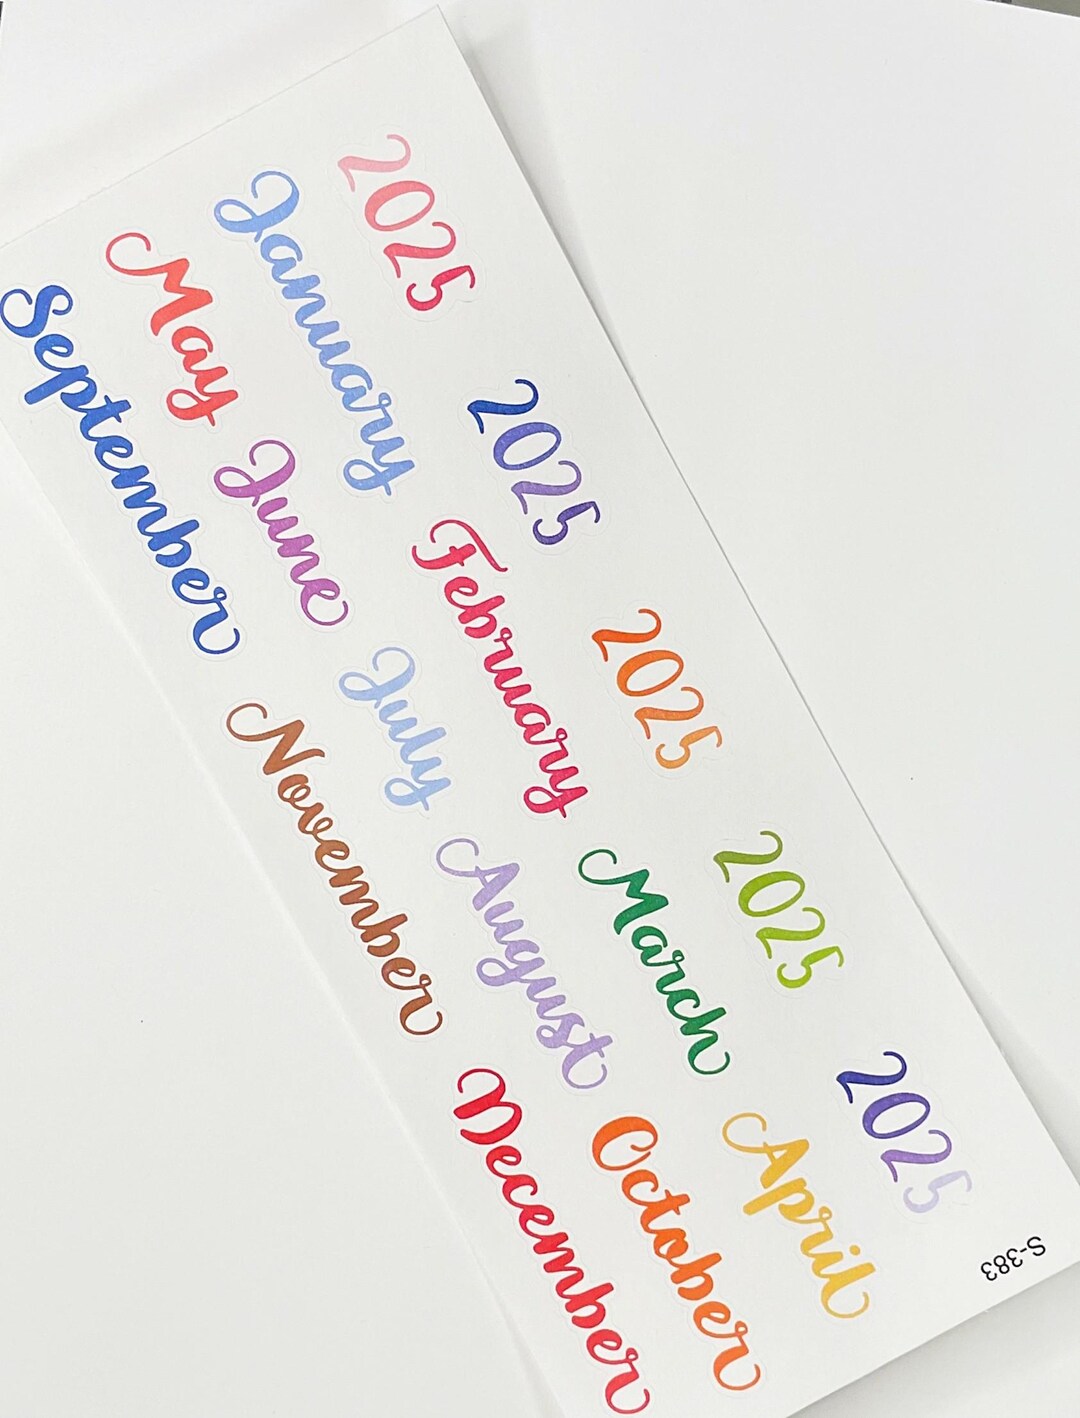 2025 2025 2025 2025 2025
January February March April
May June July August October
September November December
S-383